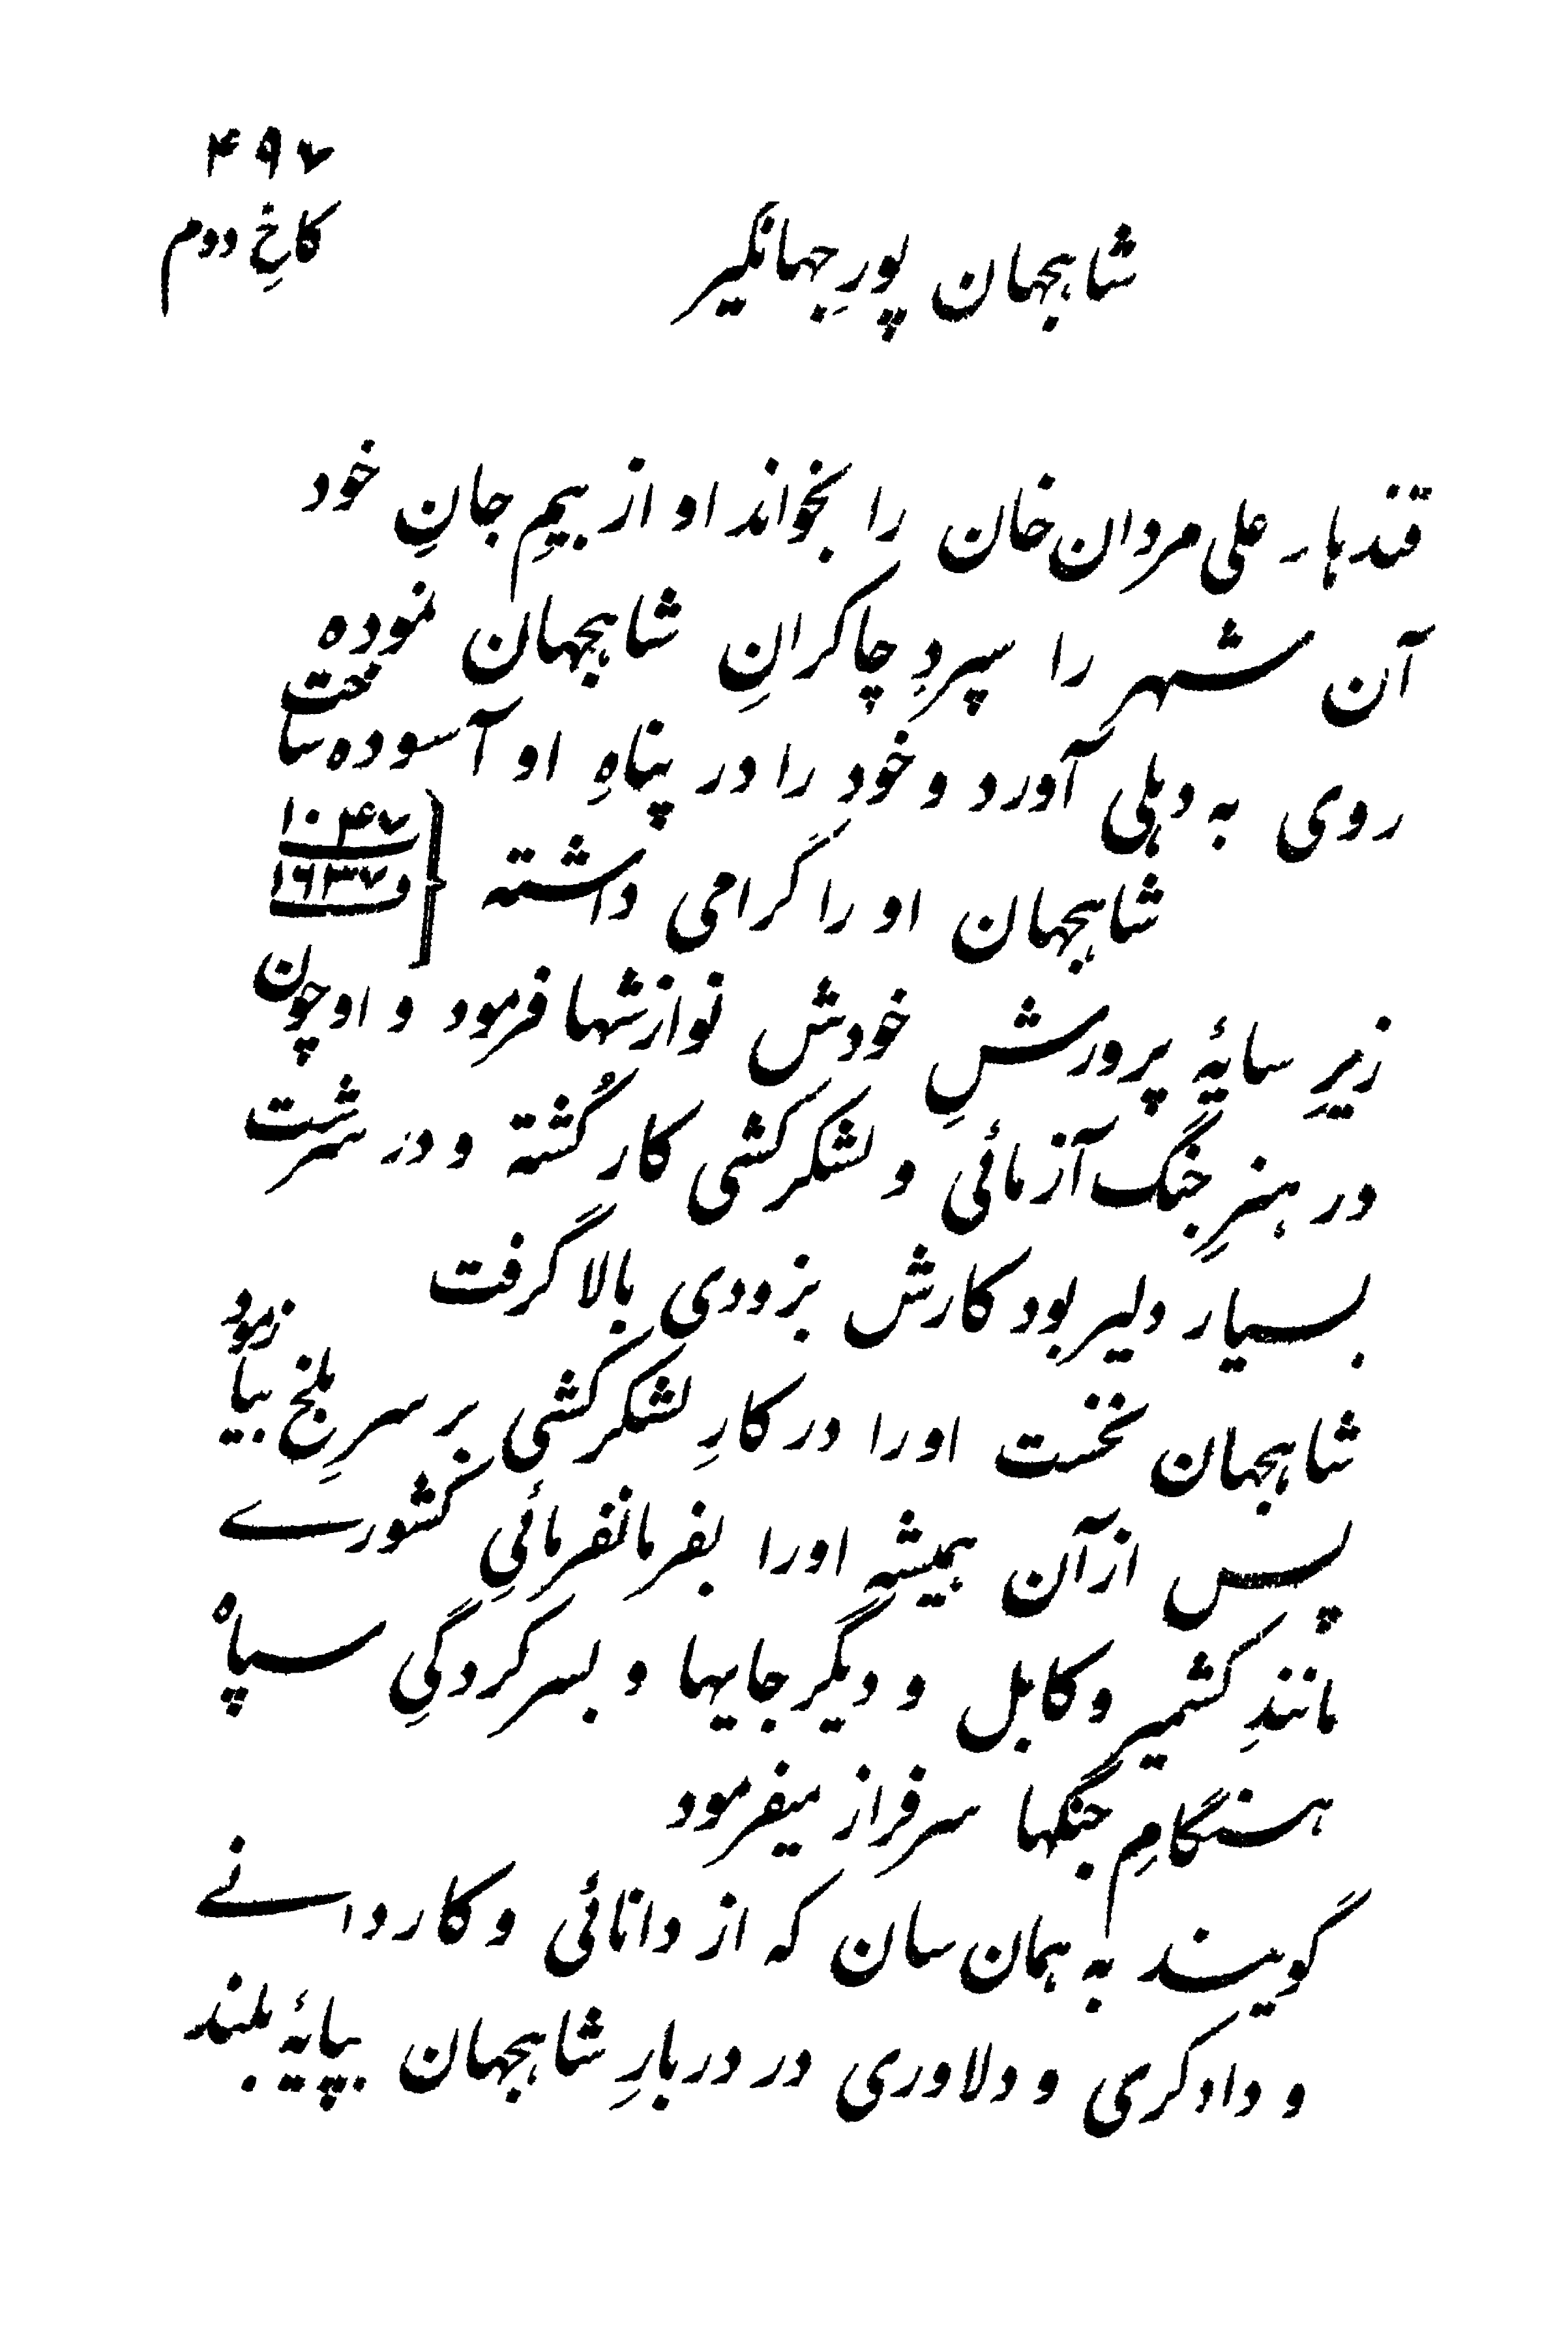 ۴۹۷
کاخِ دوم
شاہجہان پورِ جہانگیر
قندہار علی مردان خان را بخواند او از بیمِ جانِ خود
آن شہر را سپردِ چاکرانِ شاہجہان نمودہ
روی بہ دہلی آورد و خود را در پناہِ او آسودہ ساخت
شاہجہان او را گرامی داشتہ { ۱۰۴۷ و ۱۶۳۷
زیرِ سایۂ پرورشِ خودش نوازشہا فرمود و او چون
در ہنرِ جنگ آزمائی و لشکرکشی کار کُشتہ و در سرشت
بسیار دلیر بود کارش بزودی بالا گرفت
شاہجہان نخست او را در کارِ لشکرکشی بر سرِ بلخ بیازمود
پس از آن ہمیشہ او را بفرمانفرمائیِ کشورے
مانندِ کشمیر و کابل و دیگر جایہا و بسرکردگیِ سپاہ
ہنگامِ جنگہا سرفراز میفرمود
گویند بہ ہمان سان کہ از دانائی و کاردانے
و دادگری و دلاوری در دربارِ شاہجہان بپایۂ بلند